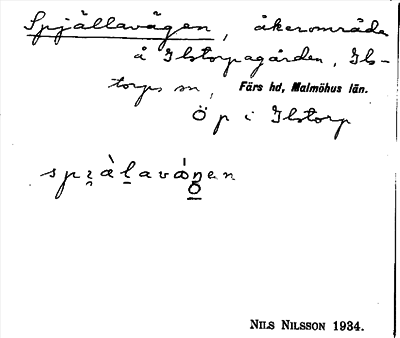 Spjällavägen, åkerområde
å Ilstorpagården, Ils-
torps sn, Färs hd, Malmöhus län.
Ö p i Ilstorp
NILS NILSSON 1934.